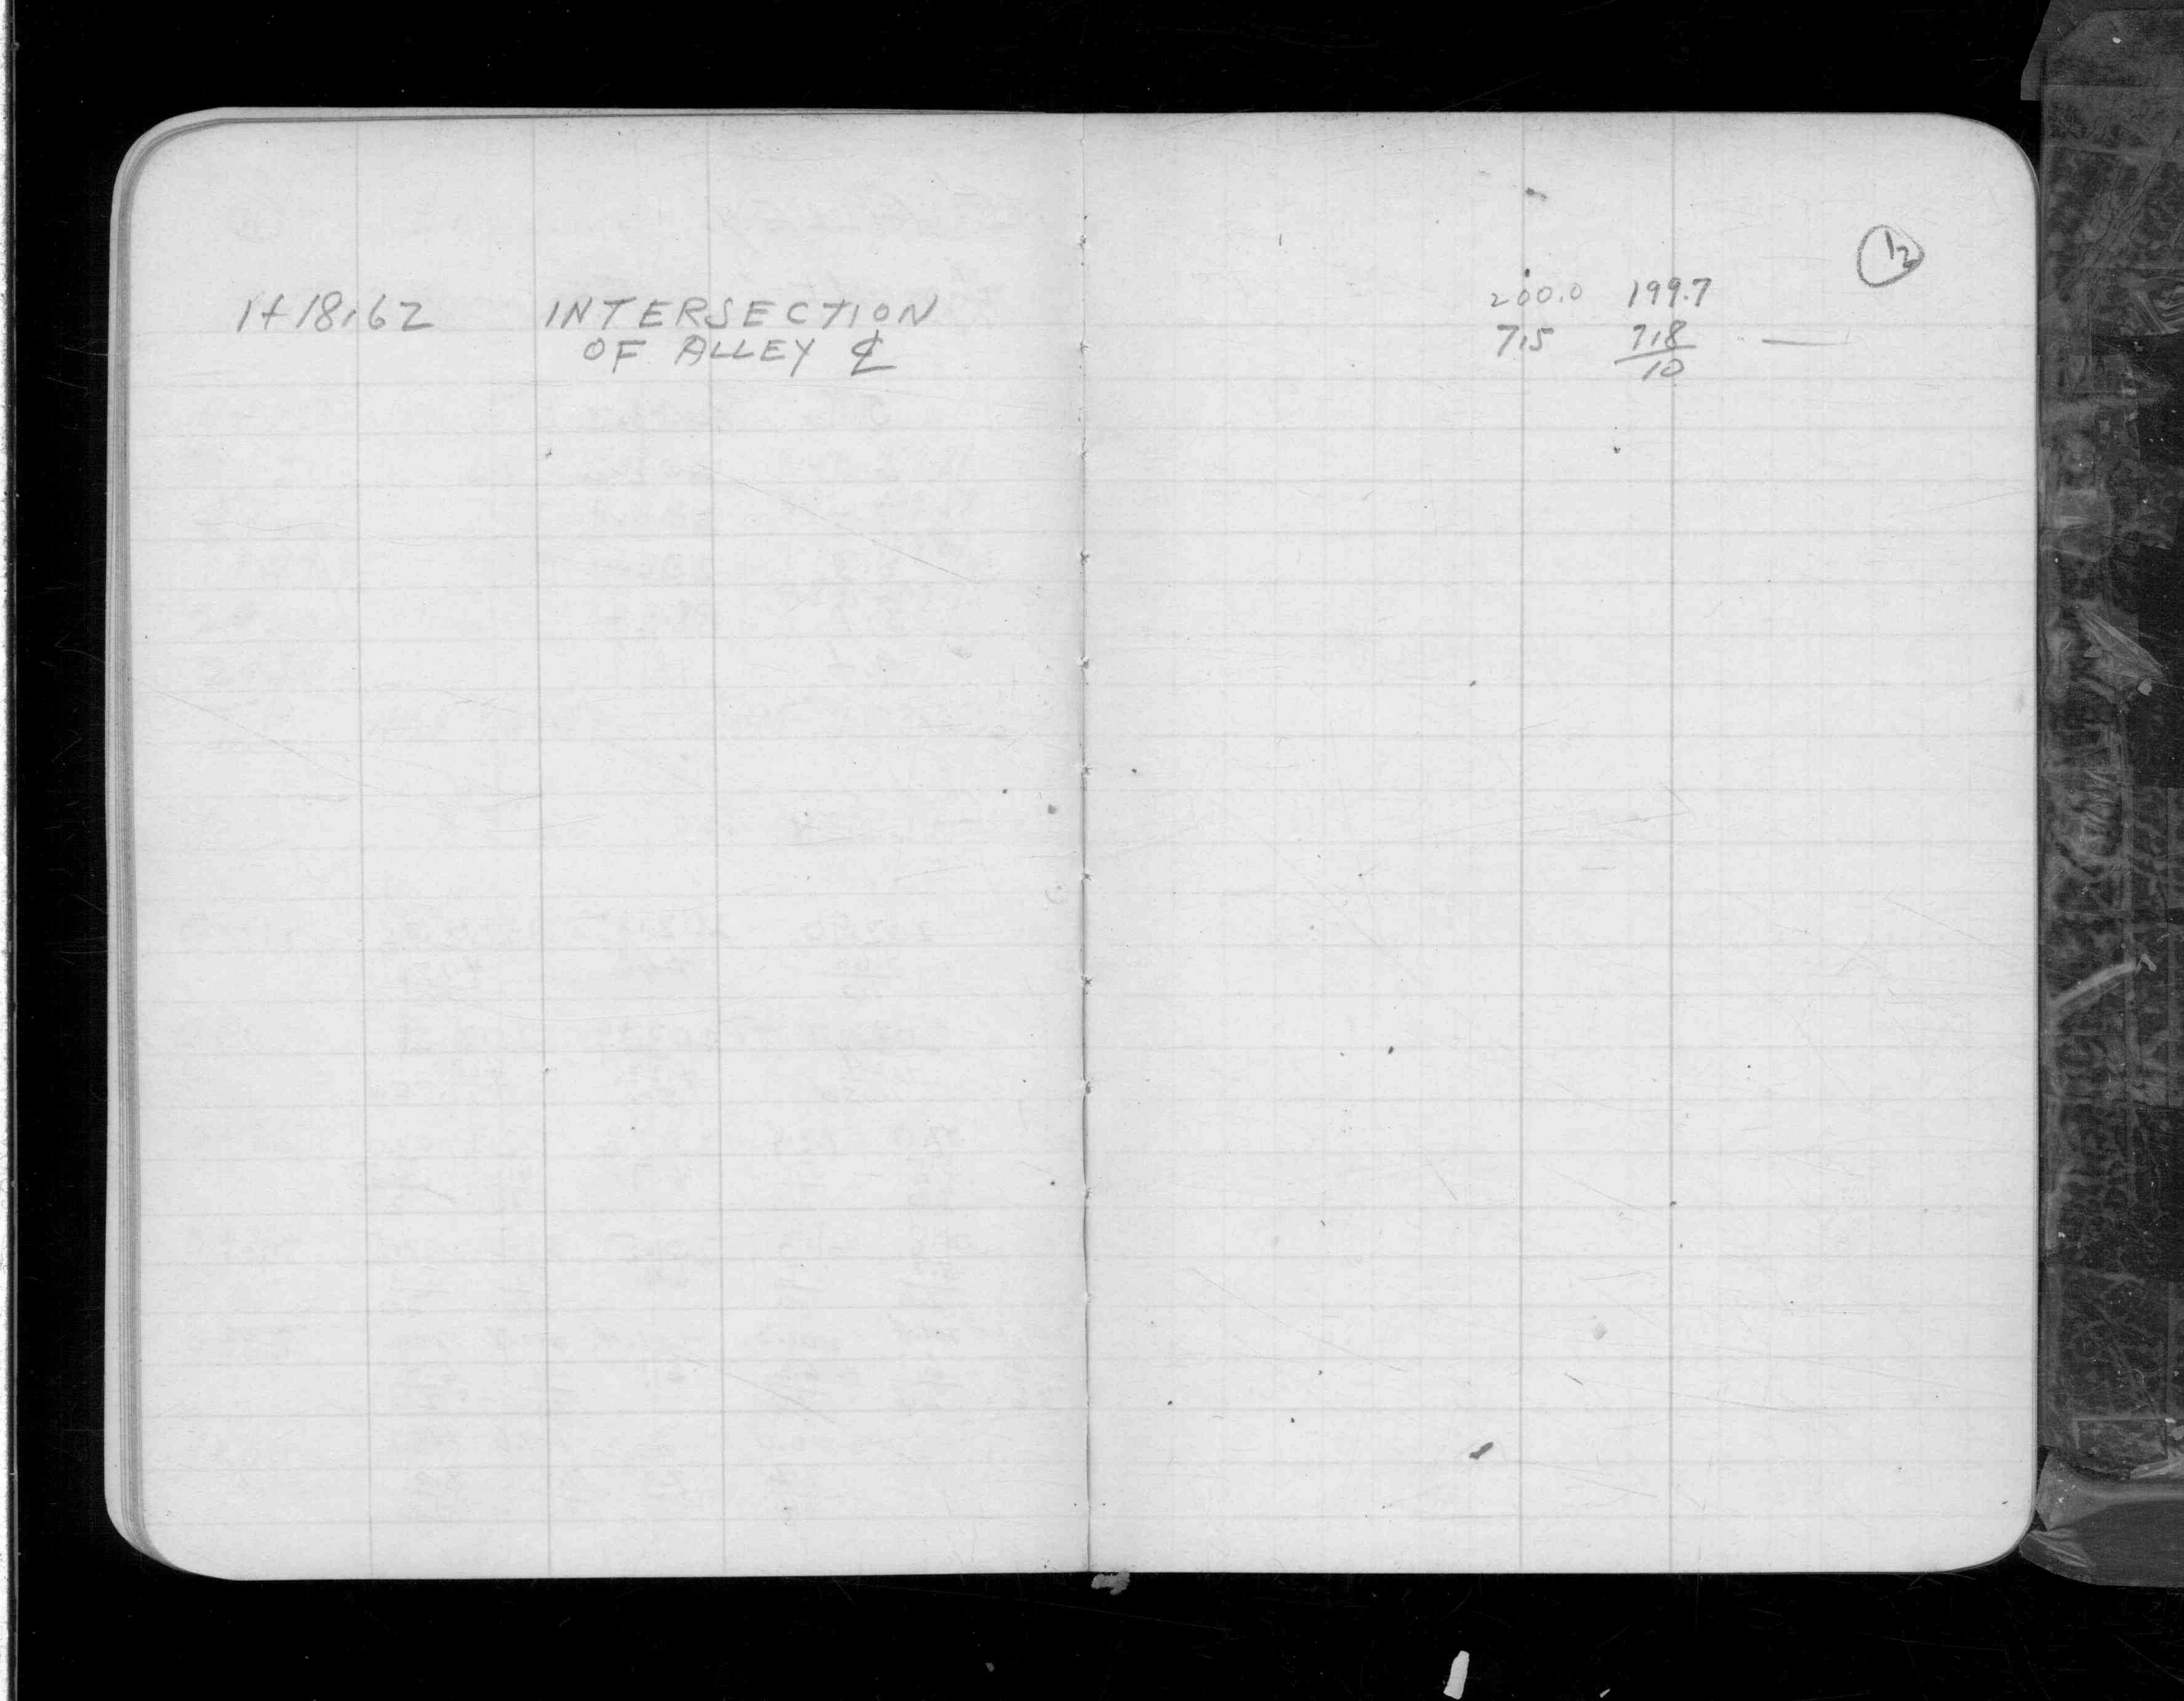 12
1+18.62 INTERSECTION
OF ALLEY ℄
200.0 199.7
7.5 7.8 —
10